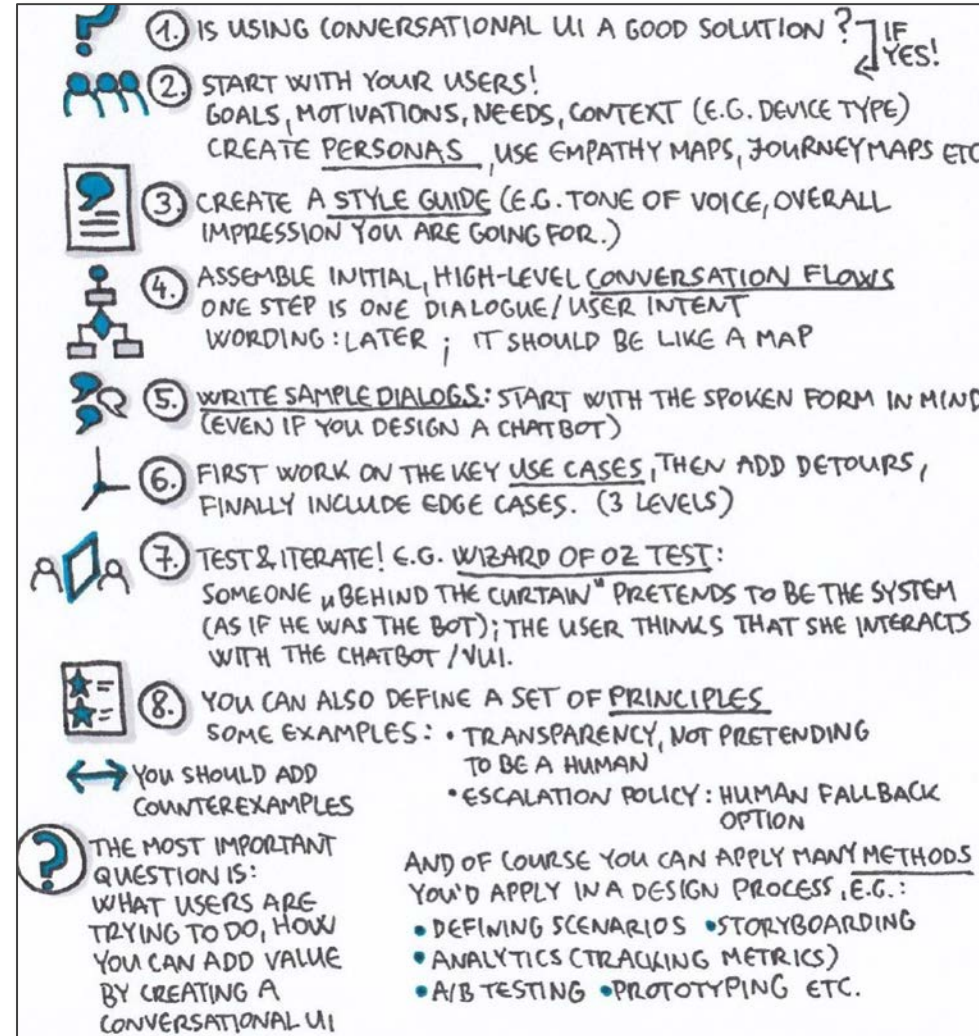 1. IS USING CONVERSATIONAL UI A GOOD SOLUTION? IF
YES!
2. START WITH YOUR USERS!
GOALS, MOTIVATIONS, NEEDS, CONTEXT (E.G. DEVICE TYPE)
CREATE PERSONAS, USE EMPATHY MAPS, JOURNEY MAPS ETC
3. CREATE A STYLE GUIDE (E.G. TONE OF VOICE, OVERALL
IMPRESSION YOU ARE GOING FOR.)
4. ASSEMBLE INITIAL, HIGH-LEVEL CONVERSATION FLOWS
ONE STEP IS ONE DIALOGUE/USER INTENT
WORDING: LATER; IT SHOULD BE LIKE A MAP
5. WRITE SAMPLE DIALOGS: START WITH THE SPOKEN FORM IN MIND
(EVEN IF YOU DESIGN A CHATBOT)
6. FIRST WORK ON THE KEY USE CASES, THEN ADD DETOURS,
FINALLY INCLUDE EDGE CASES. (3 LEVELS)
7. TEST & ITERATE! E.G. WIZARD OF OZ TEST:
SOMEONE „BEHIND THE CURTAIN" PRETENDS TO BE THE SYSTEM
(AS IF HE WAS THE BOT); THE USER THINKS THAT SHE INTERACTS
WITH THE CHATBOT/VUI.
8. YOU CAN ALSO DEFINE A SET OF PRINCIPLES
SOME EXAMPLES: • TRANSPARENCY, NOT PRETENDING
TO BE A HUMAN
• ESCALATION POLICY: HUMAN FALLBACK
OPTION
YOU SHOULD ADD
COUNTEREXAMPLES
? THE MOST IMPORTANT
QUESTION IS:
WHAT USERS ARE
TRYING TO DO, HOW
YOU CAN ADD VALUE
BY CREATING A
CONVERSATIONAL UI
AND OF COURSE YOU CAN APPLY MANY METHODS
YOU'D APPLY IN A DESIGN PROCESS, E.G.:
• DEFINING SCENARIOS • STORYBOARDING
• ANALYTICS (TRACKING METRICS)
• A/B TESTING • PROTOTYPING ETC.